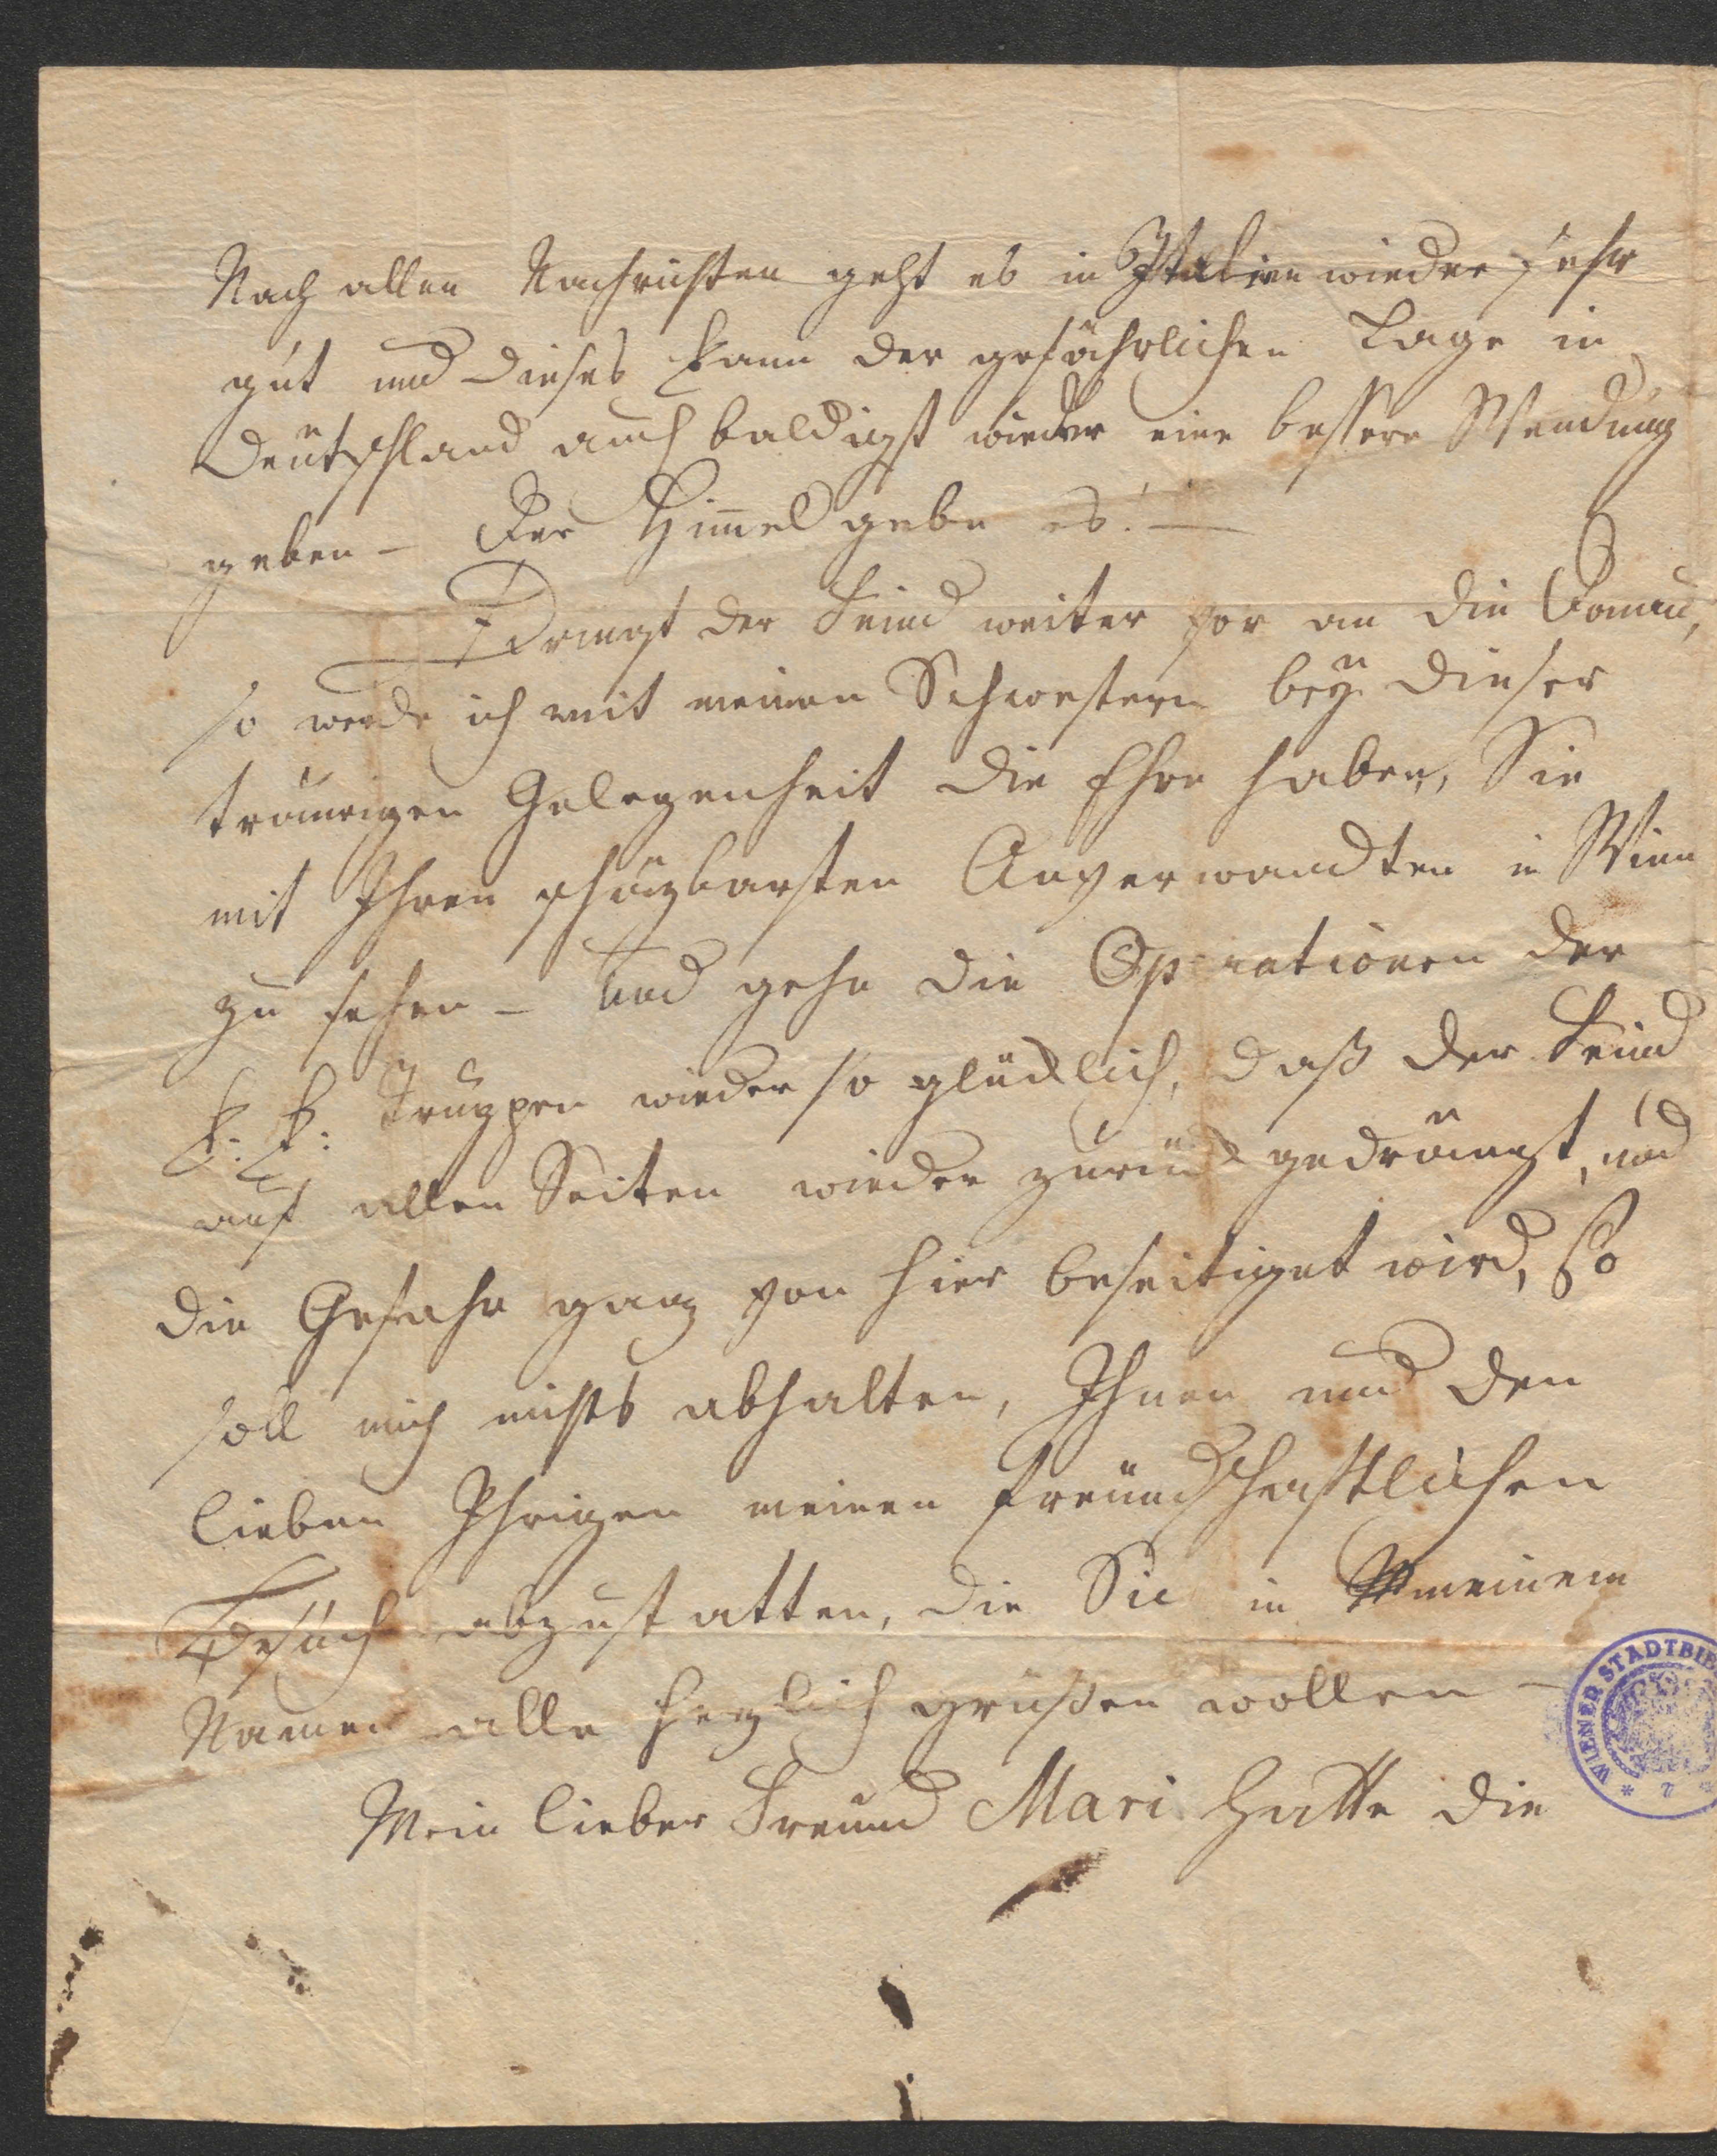 Nach allen Nachrichten geht es in Italien wieder sehr
gut und dieses kann der gefährlichen Lage in
Deutschland auch baldigst wieder eine bessere Wendung
geben – Der Himmel gebe es! –
Dringt der Feind weiter vor an die Donau,
so werde ich mit meinen Schwestern bey dieser
traurigen Gelegenheit die Ehre haben, Sie
mit Ihren schäzbarsten Anverwandten in Wien
zu sehen – Und gehn die Operationen der
k. k: Truppen wieder so glücklich, daß der Feind
auf allen Seiten wieder zurück gedrängt, und
die Gefahr ganz von hier beseitiget wird, So
soll mich nichts abhalten, Ihnen und den
lieben Ihrigen meinen freundschaftlichen
Besuch abzustatten, die Sie in meinem
Namen alle herzlich grüßen wollen –
Mein lieber Freund Mari hatte die
WIENER STADTBIB